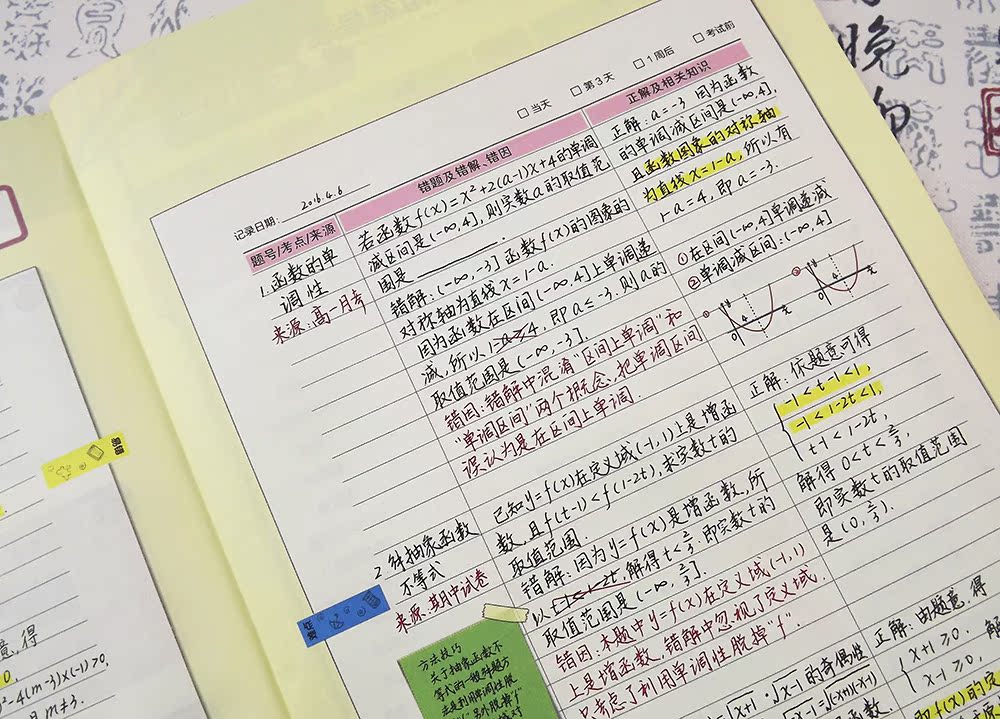 □ 当天 □ 第3天 □ 1周后 □ 考试前
记录日期: 2016.4.6
题号/考点/来源
错题及错解、错因
正解及相关知识
1.函数的单
调性
来源:高一月考
若函数f(x)=x²+2(a-1)x+4的单调
减区间是(-∞,4],则实数a的取值范
围是
错解:(-∞,-3]函数f(x)的图象的
对称轴为直线x=1-a.
因为函数在区间(-∞,4]上单调递
减,所以1-a≥4,即a≤-3.则a的
取值范围是(-∞,-3].
错因:错解中混淆“区间上单调”和
“单调区间”两个概念,把单调区间
误认为是在区间上单调.
正解:a=-3 因为函数
的单调减区间是(-∞,4],
且函数图象的对称轴
为直线x=1-a,所以有
1-a=4,即a=-3.
①在区间(-∞,4]单调递减
②单调减区间:(-∞,4]
① y 0 4 x
② 0 4 x
2.解抽象函数
不等式
来源:期中试卷
已知y=f(x)在定义域(-1,1)上是增函
数,且f(t-1)<f(1-2t),求实数t的
取值范围.
错解:因为y=f(x)是增函数,所
以t-1<1-2t,解得t<2/3,即实数t的
取值范围是(-∞,2/3].
错因:本题中y=f(x)在定义域(-1,1)
上是增函数,错解中忽视了定义域,
只考虑了利用单调性脱掉“f”.
正解:依题意可得
-1<t-1<1,
-1<1-2t<1,
t-1<1-2t,
解得0<t<2/3,
即实数t的取值范围
是(0,2/3).
方法技巧
关于抽象函数不
等式的一般解题方
法是利用单调性脱
√x+1·√x-1的奇偶性
正解:由题意,得
x+1≥0,
x-1≥0,
即f(x)的定
意,得
0,
²-4(m-3)×(-1)>0,
且m≠3.
易错
晚